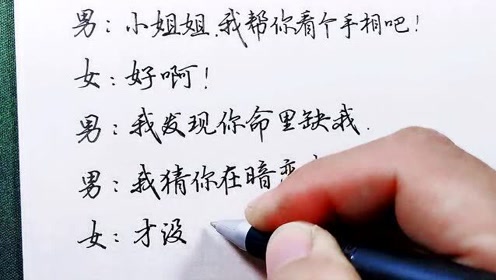 男：小姐姐，我帮你看个手相吧！
女：好啊！
男：我发现你命里缺我．
男：我猜你在暗恋
女：才没